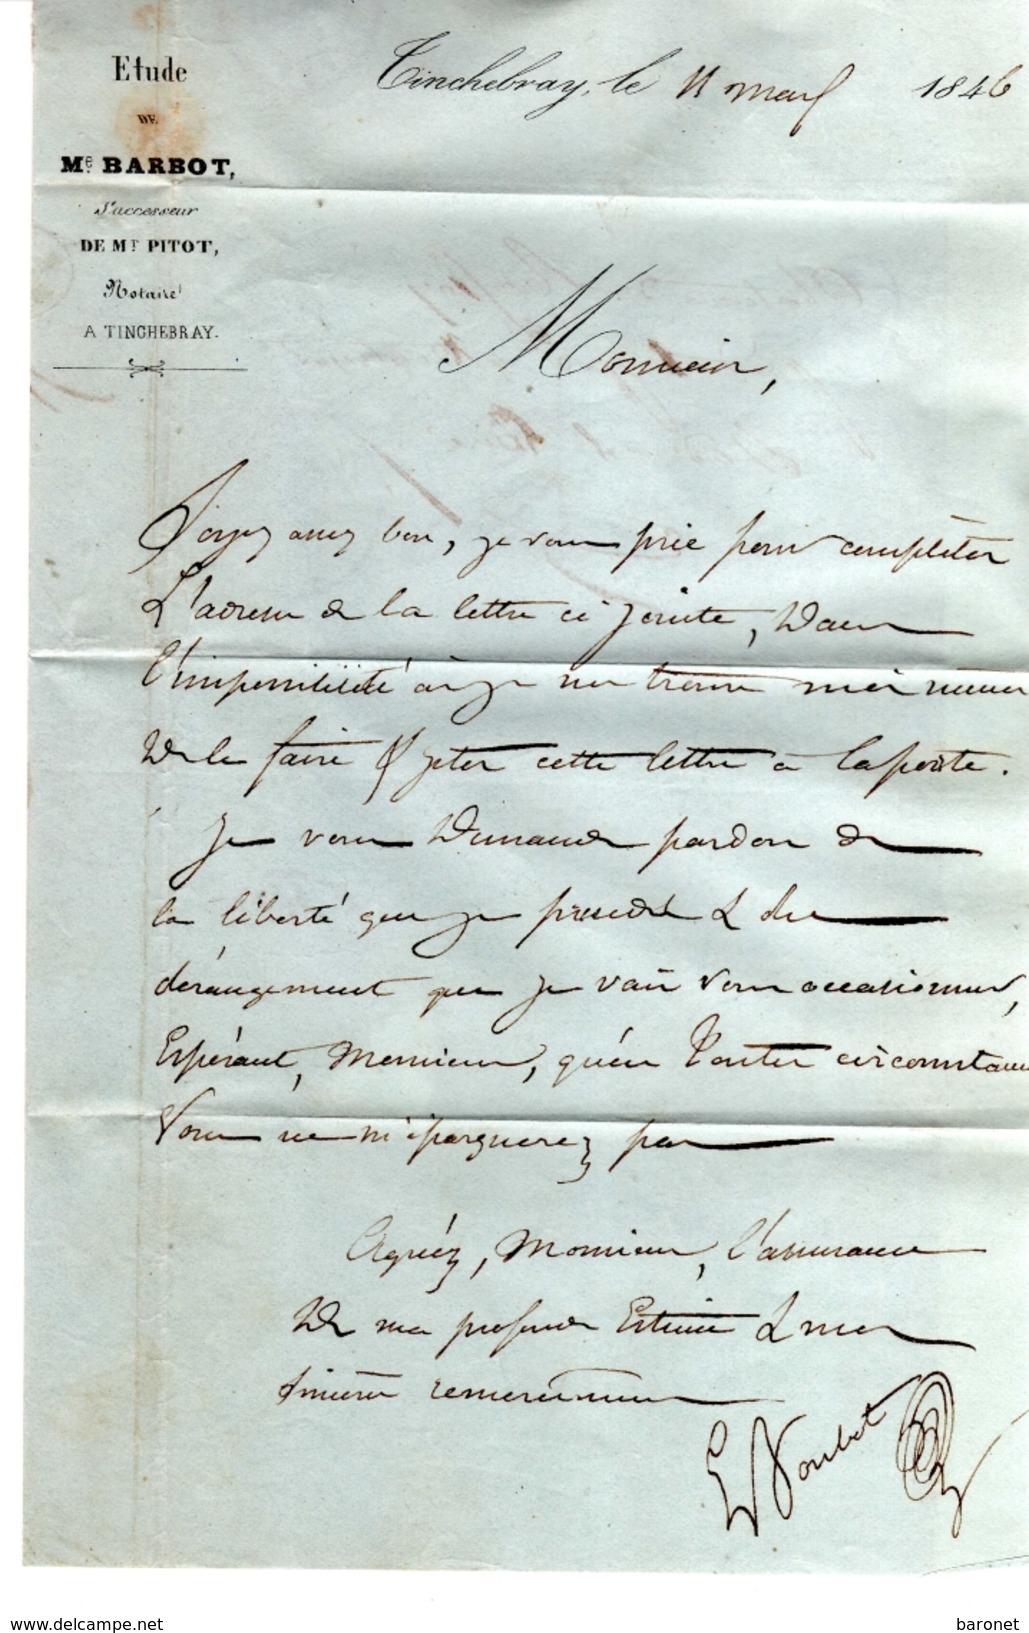 Etude
DE
Me. BARBOT,
Successeur
DE MR PITOT,
Notaire
A TINCHEBRAY.
Tinchebray, le 11 mars 1846
Monsieur,
Soyez assez bon, je vous prie pour compléter
L'adresse de la lettre ci jointe, Dans
l'impossibilité où je me trouve moi même
De le faire & jeter cette lettre à la poste.
Je vous Demande pardon de
la liberté que je prends & du
dérangement que je vais vous occasionner,
Espérant, Monsieur, qu'en toutes circonstances
Vous ne m'épargnerez pas
Agréez, Monsieur, l'assurance
De ma profonde Estime & mes
sincères remerciements
www.delcampe.net
baronet